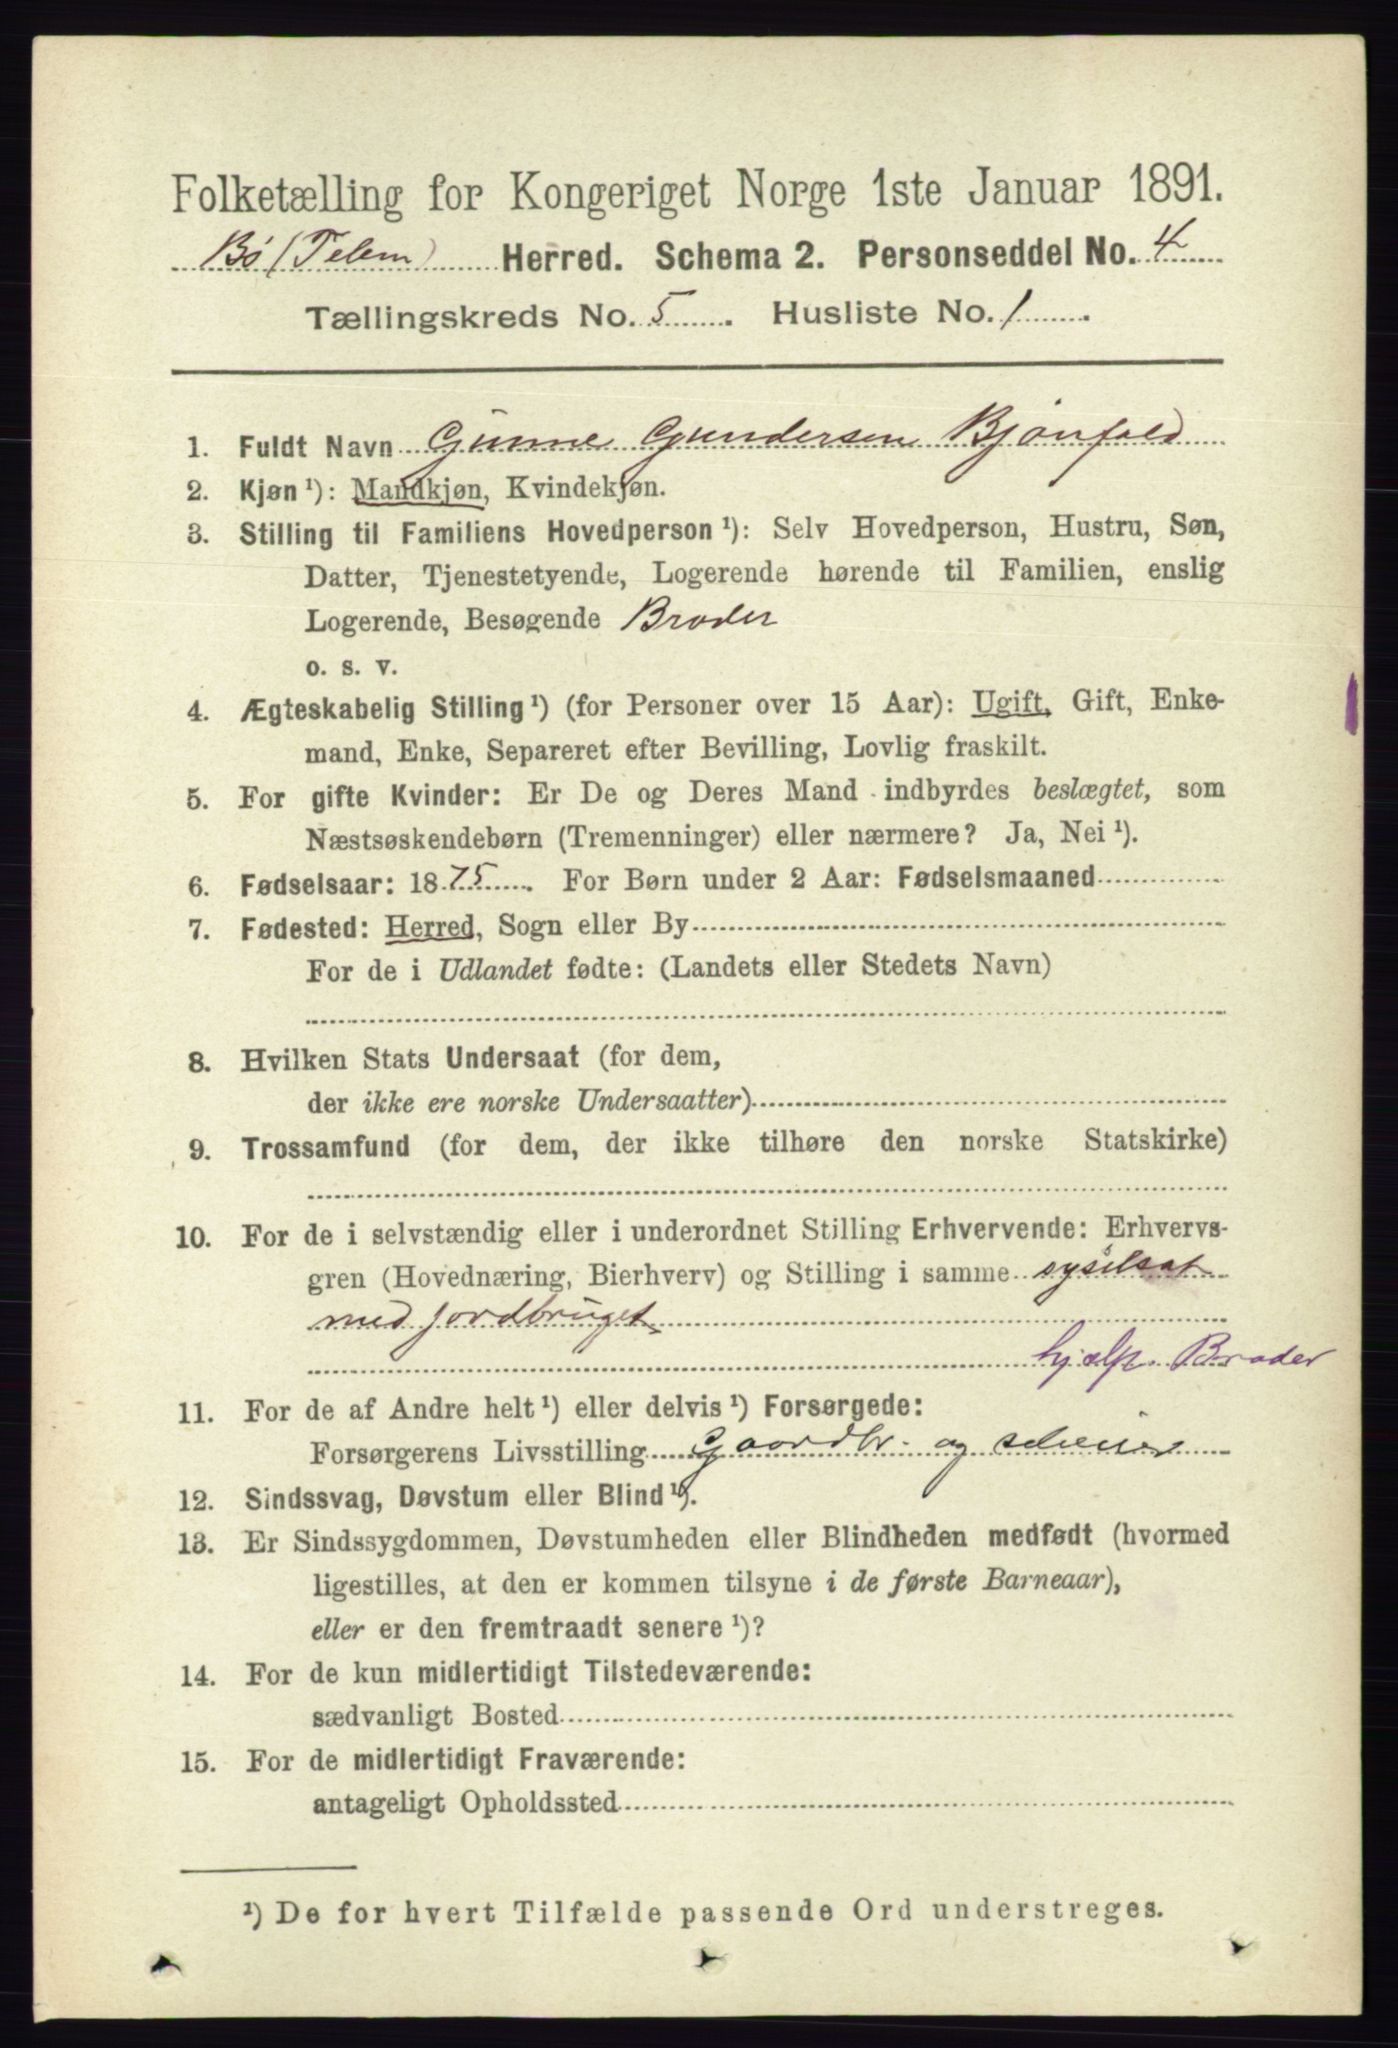 Folketælling for Kongeriget Norge 1ste Januar 1891.
Bø (Telem) Herred. Schema 2. Personseddel No. 4
Tællingskreds No. 5. Husliste No. 1.
1. Fuldt Navn Gunne Gundersen Bjønfald
2. Kjøn ¹): Mandkjøn, Kvindekjøn.
3. Stilling til Familiens Hovedperson ¹): Selv Hovedperson, Hustru, Søn,
Datter, Tjenestetyende, Logerende hørende til Familien, enslig
Logerende, Besøgende Broder
o. s. v.
4. Ægteskabelig Stilling ¹) (for Personer over 15 Aar): Ugift, Gift, Enke-
mand, Enke, Separeret efter Bevilling, Lovlig fraskilt.
5. For gifte Kvinder: Er De og Deres Mand indbyrdes beslægtet, som
Næstsøskendebørn (Tremenninger) eller nærmere? Ja, Nei ¹).
6. Fødselsaar: 1875. For Børn under 2 Aar: Fødselsmaaned
7. Fødested: Herred, Sogn eller By
For de i Udlandet fødte: (Landets eller Stedets Navn)
8. Hvilken Stats Undersaat (for dem,
der ikke ere norske Undersaatter)
9. Trossamfund (for dem, der ikke tilhøre den norske Statskirke)
10. For de i selvstændig eller i underordnet Stilling Erhvervende: Erhvervs-
gren (Hovednæring, Bierhverv) og Stilling i samme syselsat
med jordbruget
hjælp. Broder
11. For de af Andre helt ¹) eller delvis ¹) Forsørgede:
Forsørgerens Livsstilling Gaardbr. og
12. Sindssvag, Døvstum eller Blind ¹).
13. Er Sindssygdommen, Døvstumheden eller Blindheden medfødt (hvormed
ligestilles, at den er kommen tilsyne i de første Barneaar),
eller er den fremtraadt senere ¹)?
14. For de kun midlertidigt Tilstedeværende:
sædvanligt Bosted
15. For de midlertidigt Fraværende:
antageligt Opholdssted
¹) De for hvert Tilfælde passende Ord understreges.